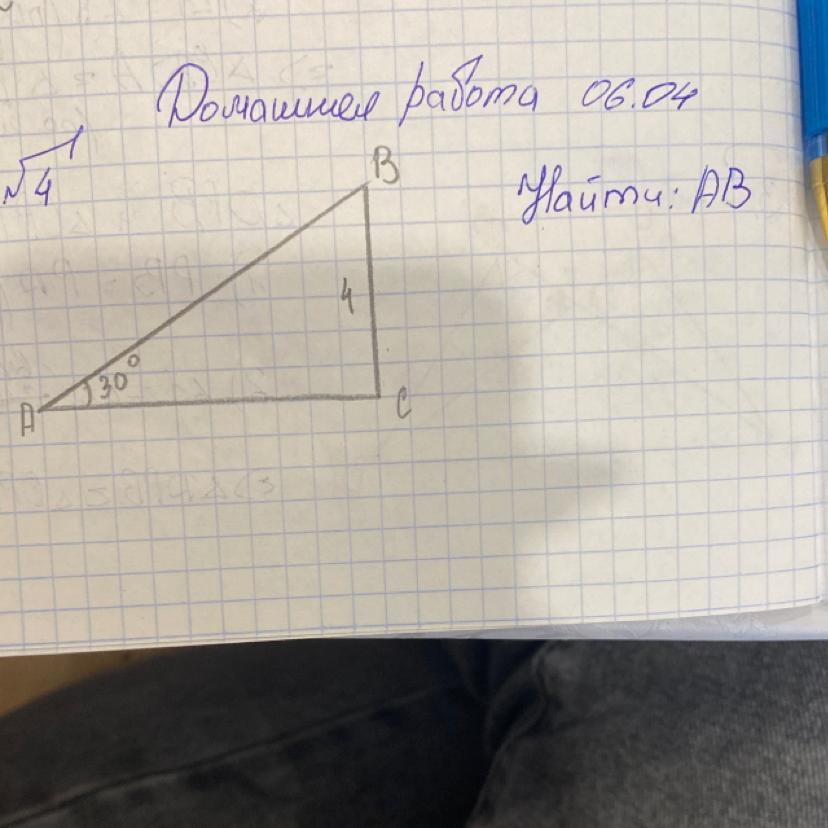 Домашняя работа 06.04
№4
Найти: AB
B
4
30°
A
C